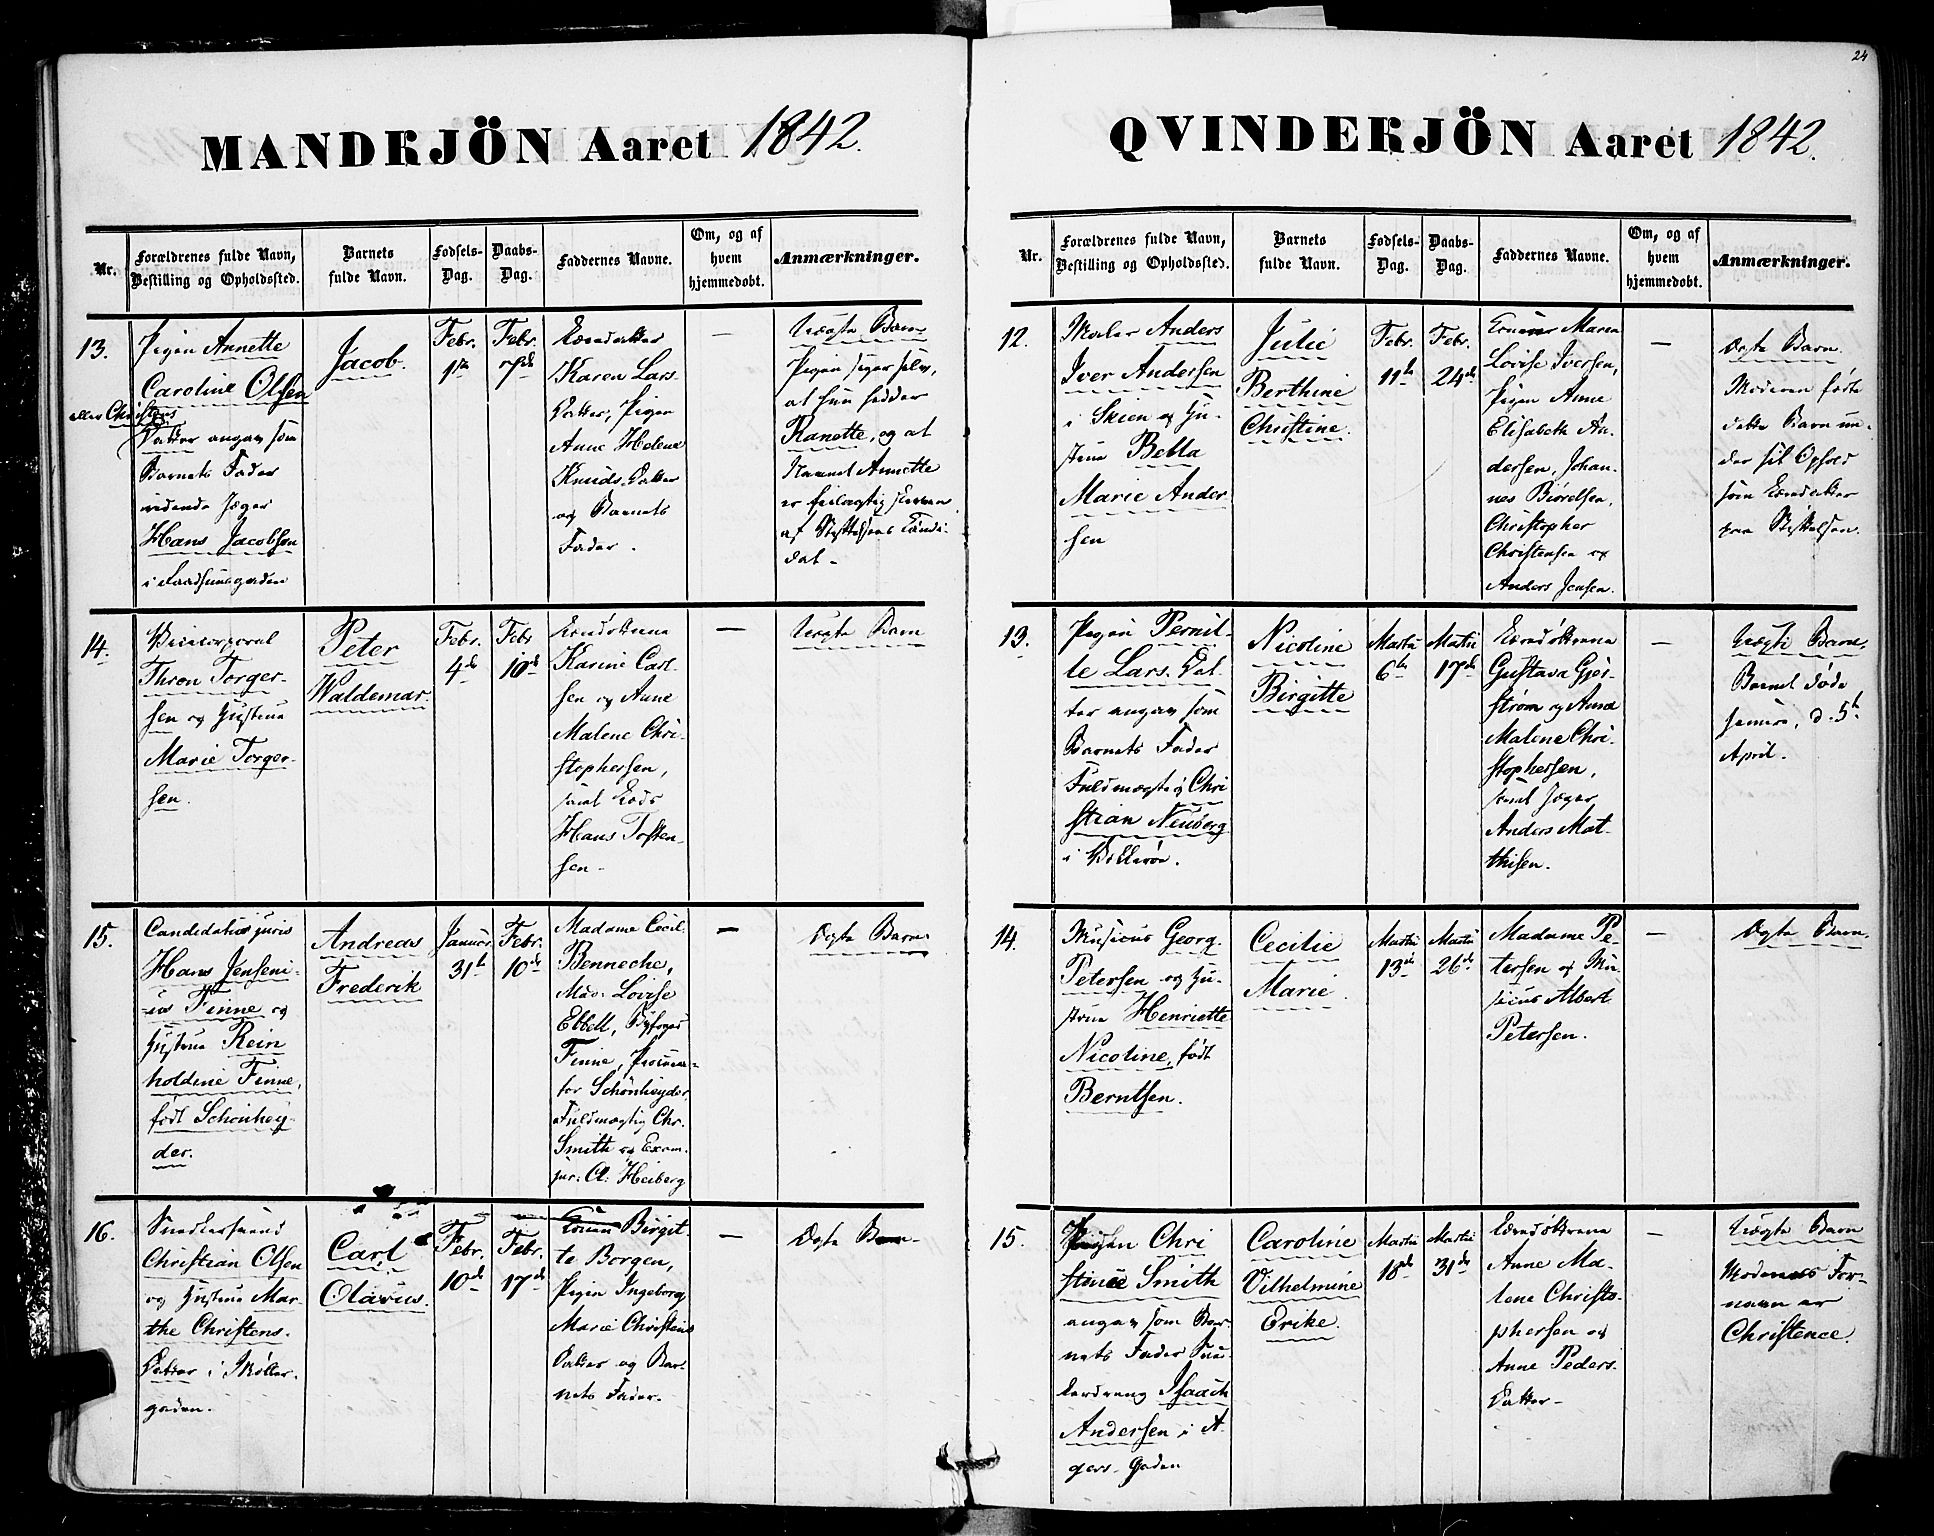 24
MANDKJÖN Aaret 1842.
Nr.
Forældrenes fulde Navn,
Bestilling og Opholdssted.
Barnets
fulde Navn.
Fødsels-
Dag.
Daabs-
Dag.
Faddernes Navne.
Om, og af
hvem
hjemmedøbt.
Anmærkninger.
13.
Pigen Annette
Caroline Olsen
eller Christens
Datter angav som
Barnets Fader
Jæger
Hans Jacobsen
i
Jacob.
Febr.
1ste
Febr.
7de
Karen Lars-
Datter, Pigen
Anne Helene
Knuds Datter
og Barnets
Fader.
—
Uægte Barn.
Pigen siger selv,
at hun hedder
Ranette, og at
Navnet Annette
er feilagtig skreven
af Stiftelsens Candi-
dat.
14.
Vicecorporal
Thron Torger-
sen og Hustrue
Marie Torger-
sen.
Peter
Waldemar.
Febr.
4de
Febr
10de
Karine Carl-
sen og Anne
Malene Chri-
stophersen,
samt
Hans Tosten-
sen.
—
Uægte Barn
15.
Candidatus juris
Hans Jenseni-
us Finne og
Hustrue Rein
holdine Finne,
født Schönhey-
der.
Andreas
Frederik
Januar
31te
Febr.
10de
Madame Cecil.
Benneche,
Mad. Lovise
Ebbell, Byfoged
Finne, Procura-
tor Schönheyder
Fuldmægtig Chr.
Smith og Exam.
jur. Cl. Heiberg
—
Ægte Barn.
16.
Snedkersvend
Christian Olsen
og Hustrue Mar-
the Christens.
Datter i Møller-
gaden.
Carl
Olavus.
Febr.
10de
Febr.
17de
Konen Birgit-
te Borgen,
Pigen Ingeborg
Marie Christens
Datter og Bar-
nets Fader.
—
Ægte Barn.
QVINDEKJÖN Aaret 1842.
Nr.
Forældrenes fulde Navn,
Bestilling og Opholdssted.
Barnets
fulde Navn.
Fødsels-
Dag.
Daabs-
Dag.
Faddernes Navne.
Om, og af
hvem
hjemmedøbt.
Anmærkninger.
12.
Maler Anders
Iver Andersen
i Skien og Hu-
strue Betla
Marie Ander
sen
Julie
Berthine
Christine.
Febr.
11te
Febr.
24de
Konen Maren
Lovise Iversen,
Pigen Anne
Elisabeth An-
dersen, Johan-
nes Biørelsen,
Christopher
Christensen og
Anders Jensen.
—
Ægte Barn.
Moderen fødte
dette Barn un-
der sit Ophold
som
paa Stiftelsen.
13.
Pigen Pernil-
le Lars. Dat-
ter angav som
Barnets Fader
Fuldmægtig Chri
stian Neuberg
i
Nicoline
Birgitte
Martii
6te
Martii
17de
Gustava Gjes-
strøm og Anne
Malene Chri-
stophersen,
samt Jæger
Anders Mat-
thisen.
—
Uægte Barn,
Barnet døde
senere, d. 5te
April.
14.
Musicus Georg
Petersen og Hu-
strue Henriette
Nicoline, født
Berntsen.
Cecilie
Marie.
Martii
13de
Martii
26de
Madame Pe-
tersen og Mu-
sicus Albert
Petersen.
—
Ægte Barn.
15.
Pigen Chri
stine Smith
angav som Bar-
nets Fader Sne-
kerdreng Isaach
Andersen i A-
gers-Gaden
Caroline
Vilhelmine
Erike.
Martii
18de
Martii
31de
Anne Ma-
lene Christo-
phersen og
Anne Peders
Datter.
—
Uægte Barn
Moderens For-
navn er
Christence.